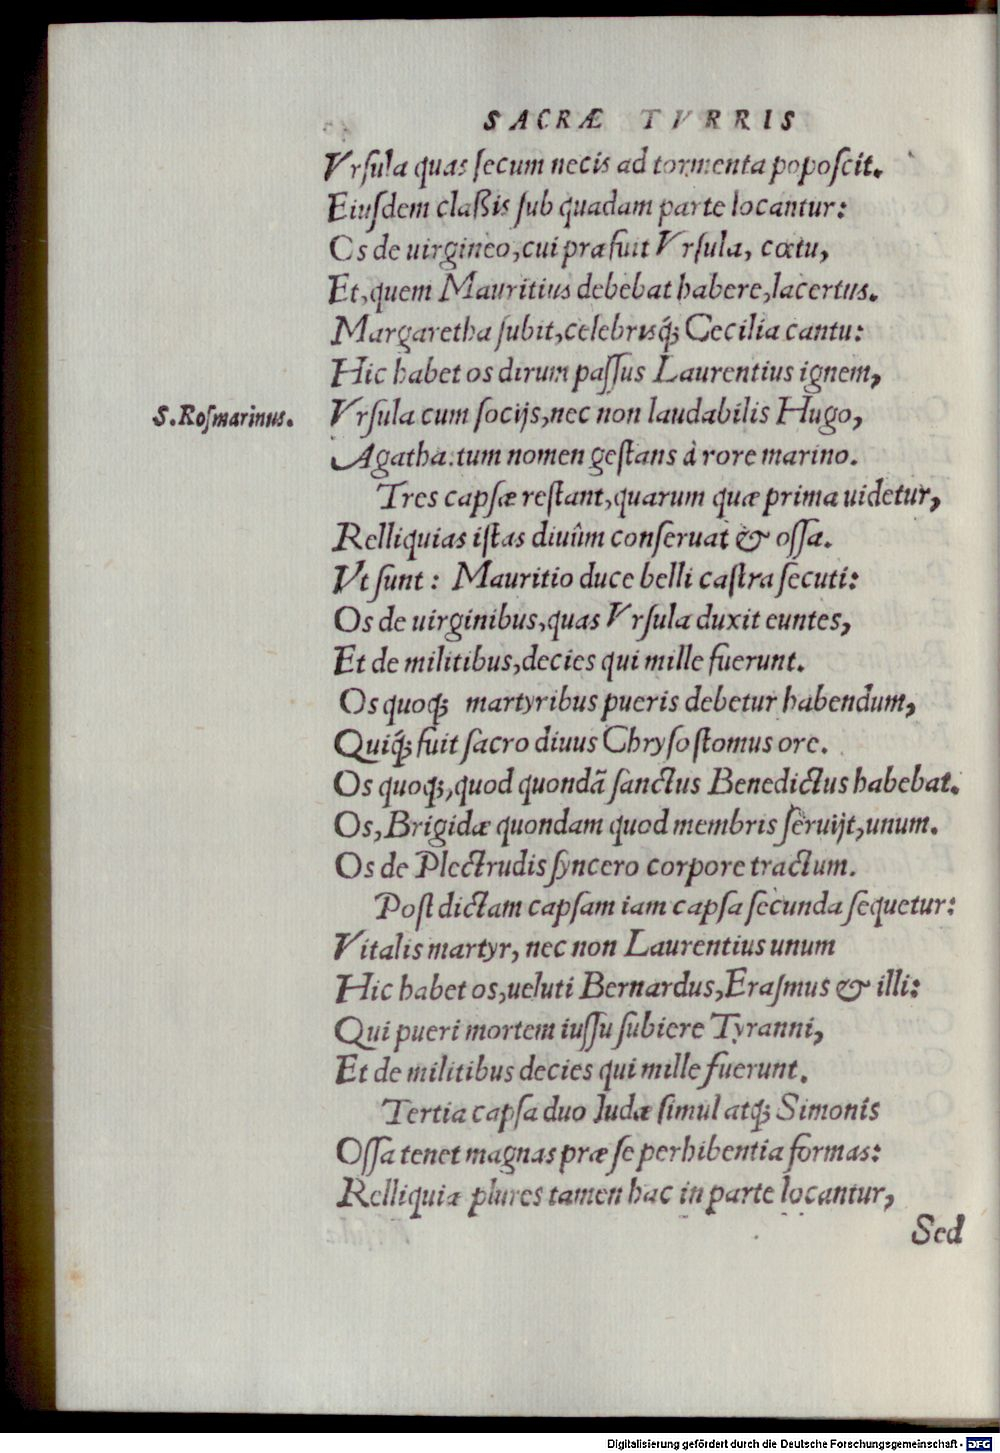 SACRÆ TVRRIS
Vrſula quas ſecum necis ad tormenta popoſcit.
Eiuſdem claßis ſub quadam parte locantur:
Os de uirgineo, cui præfuit Vrſula, cœtu,
Et, quem Mauritius debebat habere, lacertus.
Margaretha ſubit, celebrisq́; Cecilia cantu:
Hic habet os dirum paſſus Laurentius ignem,
S. Roſmarinus.
Vrſula cum ſocijs, nec non laudabilis Hugo,
Agatha: tum nomen geſtans à rore marino.
Tres capſæ reſtant, quarum quæ prima uidetur,
Relliquias iſtas diuûm conſeruat & oſſa.
Vt ſunt: Mauritio duce belli caſtra ſecuti:
Os de uirginibus, quas Vrſula duxit euntes,
Et de militibus, decies qui mille fuerunt.
Os quoq; martyribus pueris debetur habendum,
Quiq́; fuit ſacro diuus Chryſoſtomus ore.
Os quoq;, quod quondã ſanctus Benedictus habebat.
Os, Brigidæ quondam quod membris ſeruijt, unum.
Os de Plectrudis ſyncero corpore tractum.
Poſt dictam capſam iam capſa ſecunda ſequetur:
Vitalis martyr, nec non Laurentius unum
Hic habet os, ueluti Bernardus, Eraſmus & illi:
Qui pueri mortem iuſſu ſubiere Tyranni,
Et de militibus decies qui mille fuerunt.
Tertia capſa duo Iudæ ſimul atq; Simonis
Oſſa tenet magnas præ ſe perhibentia formas:
Relliquiæ plures tamen hac in parte locantur,
Sed
Digitalisierung gefördert durch die Deutsche Forschungsgemeinschaft - DFG